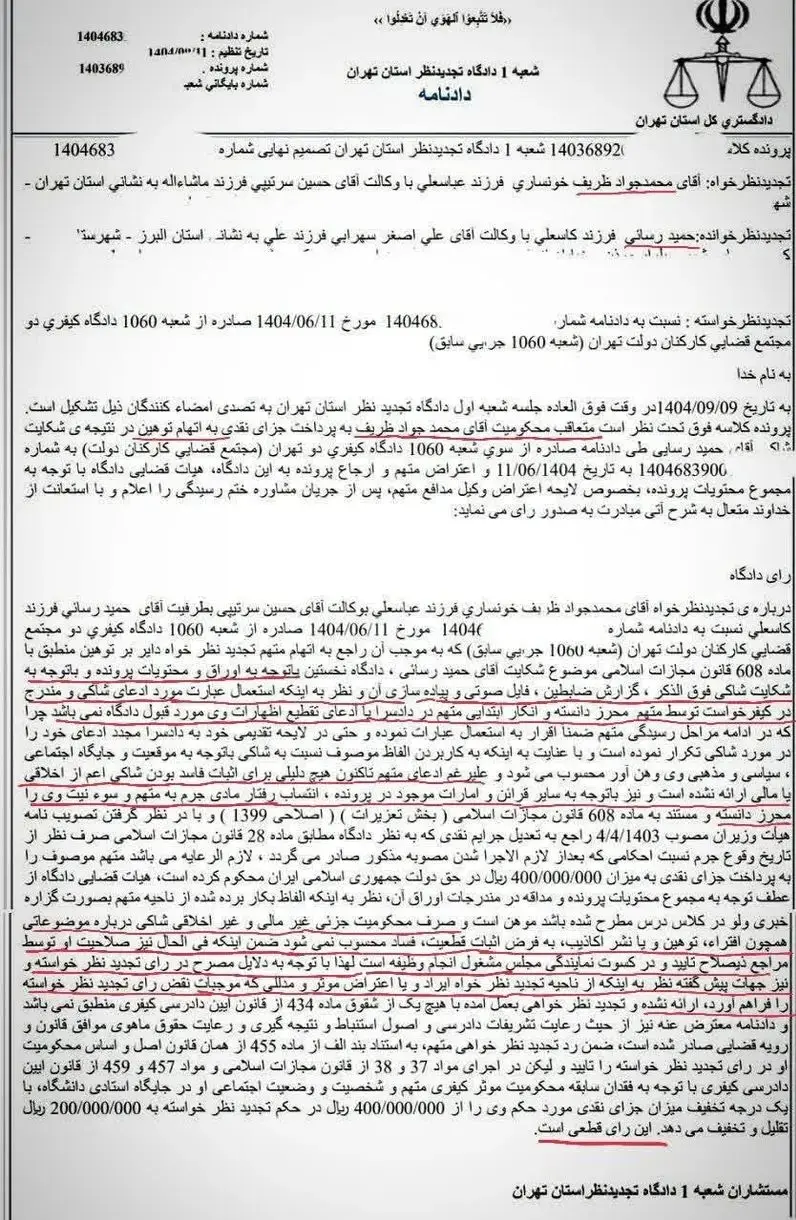 «فَلاَ تَتَّبِعُوا الْهَوَى أَنْ تَعْدِلُوا»
شماره دادنامه : 1404683
تاریخ تنظیم :
شماره پرونده . 1403689
شماره بایگانی شعبـ
شعبه 1 دادگاه تجدیدنظر استان تهران
دادنامه
دادگستری کل استان تهران
پرونده کلاسـ 14036892( شعبه 1 دادگاه تجدیدنظر استان تهران تصمیم نهایی شماره 1404683
تجدیدنظرخواه: آقای محمدجواد ظریف خونساري فرزند عباسعلي با وکالت آقای حسین سرتیپي فرزند ماشاءاله به نشاني استان تهران -
شهـ
تجدیدنظرخوانده:حمید رسائي فرزند کاسعلي با وکالت آقای علي اصغر سهرابي فرزند علي به نشانـ استان البرز - شهرستـ -
تجدیدنظرخواسته : نسبت به دادنامه شماره 140468. مورخ 1404/06/11 صادره از شعبه 1060 دادگاه کیفري دو
مجتمع قضايي کارکنان دولت تهران (شعبه 1060 جزايي سابق)
به نام خدا
به تاریخ 1404/09/09در وقت فوق العاده جلسه شعبه اول دادگاه تجدید نظر استان تهران به تصدی امضاء کنندگان ذیل تشکیل است.
پرونده کلاسه فوق تحت نظر است متعاقب محکومیت آقای محمد جواد ظریف به پرداخت جزای نقدی به اتهام توهین در نتیجه ی شکایت
آقای حمید رسایی طی دادنامه صادره از سوي شعبه 1060 دادگاه کیفری دو تهران (مجتمع قضایی کارکنان دولت) به شماره
1404683900 به تاریخ 11/06/1404 و اعتراض متهم و ارجاع پرونده به این دادگاه، هیات قضایی دادگاه با توجه به
مجموع محتویات پرونده، بخصوص لایحه اعتراض وکیل مدافع متهم، پس از جریان مشاوره ختم رسیدگی را اعلام و با استعانت از
خداوند متعال به شرح آتی مبادرت به صدور رای می نماید:
رای دادگاه
درباره ی تجدیدنظرخواه آقای محمدجواد ظریف خونساري فرزند عباسعلي بوکالت آقای حسین سرتیپی بطرفیت آقای حمید رسائي فرزند
کاسعلي نسبت به دادنامه شماره 14046 مورخ 1404/06/11 صادره از شعبه 1060 دادگاه کیفري دو مجتمع
قضايي کارکنان دولت تهران (شعبه 1060 جزايي سابق) که به موجب آن راجع به اتهام متهم تجدید نظر خواه دایر بر توهین منطبق با
ماده 608 قانون مجازات اسلامی موضوع شکایت آقای حمید رسائی ، دادگاه نخستین باتوجه به اوراق و محتویات پرونده و باتوجه به
شکایت شاکی فوق الذکر ، گزارش ضابطین ، فایل صوتی و پیاده سازی آن و نظر به اینکه استعمال عبارت مورد ادعای شاکی و مندرج
در کیفرخواست توسط متهم محرز دانسته و انکار ابتدایی متهم در دادسرا با ادعای تقطیع اظهارات وی مورد قبول دادگاه نمی باشد چرا
که در ادامه مراحل رسیدگی متهم ضمناً اقرار به استعمال عبارات نموده و حتی در لایحه تقدیمی خود به دادسرا مجدد ادعای خود را
در مورد شاکی تکرار نموده است و با عنایت به اینکه به کاربردن الفاظ موصوف نسبت به شاکی باتوجه به موقعیت و جایگاه اجتماعی
، سیاسی و مذهبی وی وهن آور محسوب می شود و علیرغم ادعای متهم تاکنون هیچ دلیلی برای اثبات فاسد بودن شاکی اعم از اخلاقی
یا مالی ارائه نشده است و نیز باتوجه به سایر قرائن و امارات موجود در پرونده ، انتساب رفتار مادی جرم به متهم و سوء نیت وی را
محرز دانسته و مستند به ماده 608 قانون مجازات اسلامی ( بخش تعزیرات ) ( اصلاحی 1399 ) و با در نظر گرفتن تصویب نامه
هیأت وزیران مصوب 4/4/1403 راجع به تعدیل جرایم نقدی که به نظر دادگاه مطابق ماده 28 قانون مجازات اسلامی صرف نظر از
تاریخ وقوع جرم نسبت احکامی که بعداز لازم الاجرا شدن مصوبه مذکور صادر می گردد ، لازم الرعایه می باشد متهم موصوف را
به پرداخت جزای نقدی به میزان 400/000/000 ریال در حق دولت جمهوری اسلامی ایران محکوم کرده است، هیات قضایی دادگاه از
عطف توجه به مجموع محتویات پرونده و مداقه در مندرجات اوراق آن، نظر به اینکه الفاظ بکار برده شده از ناحیه متهم بصورت گزاره
خبری ولو در کلاس درس مطرح شده باشد موهن است و صرف محکومیت جزئی غیر مالی و غیر اخلاقی شاکی درباره موضوعاتی
همچون افتراء، توهین و یا نشر اکاذیب، به فرض اثبات قطعیت، فساد محسوب نمی شود ضمن اینکه فی الحال نیز صلاحیت او توسط
مراجع ذیصلاح تایید و در کسوت نمایندگی مجلس مشغول انجام وظیفه است لهذا با توجه به دلایل مصرح در رای تجدید نظر خواسته و
نیز جهات پیش گفته نظر به اینکه از ناحیه تجدید نظر خواه ایراد و یا اعتراض موثر و مدللی که موجبات نقض رای تجدید نظر خواسته
را فراهم آورد، ارائه نشده و تجدید نظر خواهی بعمل آمده با هیچ یک از شقوق ماده 434 از قانون آیین دادرسی کیفری منطبق نمی باشد
و دادنامه معترض عنه نیز از حیث رعایت تشریفات دادرسی و اصول استنباط و نتیجه گیری و رعایت حقوق ماهوی موافق قانون و
رویه قضایی صادر شده است، ضمن رد تجدید نظر خواهی متهم، به استناد بند الف از ماده 455 از همان قانون اصل و اساس محکومیت
او در رای تجدید نظر خواسته را تایید و لیکن در اجرای مواد 37 و 38 از قانون مجازات اسلامی و مواد 457 و 459 از قانون آیین
دادرسی کیفری با توجه به فقدان سابقه محکومیت موثر کیفری متهم و شخصیت و وضعیت اجتماعی او در جایگاه استادی دانشگاه، با
یک درجه تخفیف میزان جزای نقدی مورد حکم وی را از 400/000/000 ریال در حکم تجدید نظر خواسته به 200/000/000 ریال
تقلیل و تخفیف می دهد. این رای قطعی است.
مستشاران شعبه 1 دادگاه تجدیدنظر استان تهران